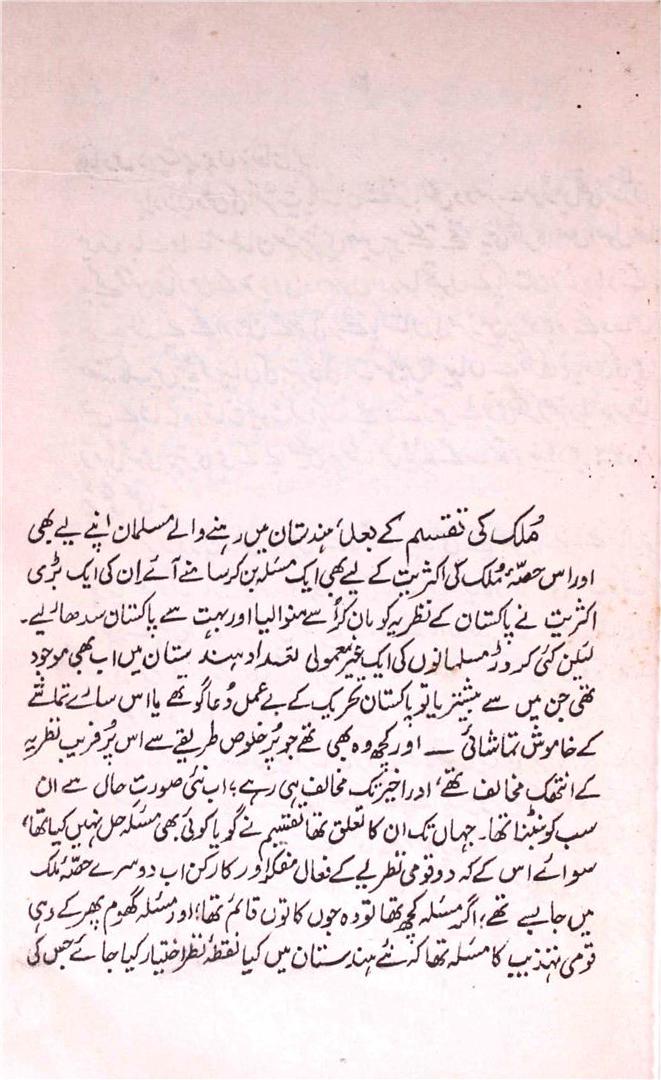 مُلک کی تقسیم کے بعد، ہندستان میں رہنے والے مسلمان اپنے لیے بھی
اور اس حصّۂ مُلک کی اکثریت کے لیے بھی ایک مسئلہ بن کر سامنے آئے اِن کی ایک بڑی
اکثریت نے پاکستان کے نظریہ کو مان کر اُسے منوالیا اور بہت سے پاکستان سدھالیے۔
لیکن کئی کروڑ مسلمانوں کی ایک غیر معمولی تعداد ہندستان میں اب بھی موجود
تھی جن میں سے بیشتر یا تو پاکستان تحریک کے بے عمل دُعا گو تھے یا اس سارے تماشے
کے خاموش تماشائی — اور کچھ وہ بھی تھے جو پُر خلوص طریقے سے اس پُر فریب نظریہ
کے انتھک مخالف تھے، اور اخیر تک مخالف ہی رہے؛ اب نئی صورتِ حال سے ان
سب کو نبٹنا تھا۔ جہاں تک ان کا تعلق تھا تقسیم نے گویا کوئی بھی مسئلہ حل نہیں کیا تھا،
سوائے اس کے کہ دو قومی نظریے کے فعال مفکر اور کارکن اب دوسرے حصّۂ مُلک
میں جا بسے تھے؛ اگر مسئلہ کچھ تھا تو وہ جوں کا توں قائم تھا؛ اور مسئلہ گھوم پھر کے وہی
قومی تہذیب کا مسئلہ تھا کہ نئے ہندستان میں کیا نقطۂ نظر اختیار کیا جائے جس کی